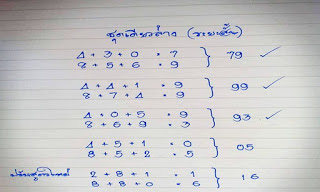 ชุดเดียวล่าง (ระยะสั้น)
4 + 3 + 0 . 7
8 + 5 + 6 . 9 } 79 ✓
4 + 4 + 1 . 9
8 + 7 + 4 . 9 } 99 ✓
4 + 0 + 5 . 9
8 + 6 + 9 . 3 } 93 ✓
4 + 5 + 1 . 0
8 + 5 + 2 . 5 } 05
2 + 8 + 1 . 1
8 + 8 + 0 . 6 } 16